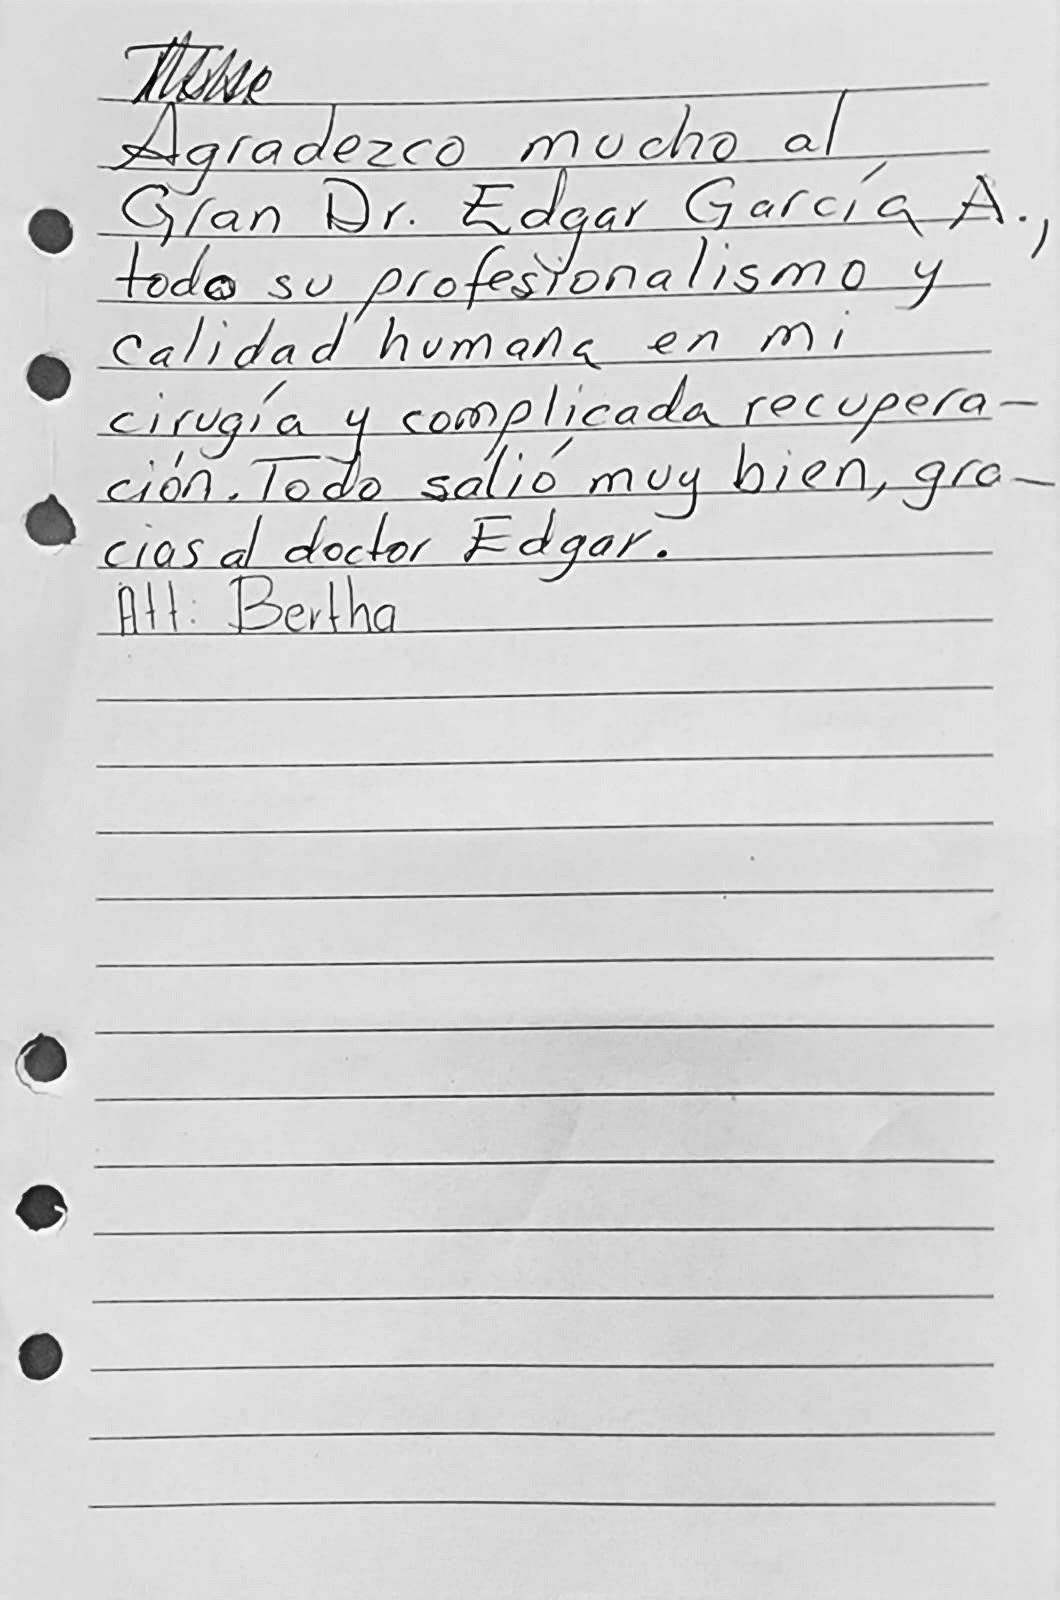 Agradezco mucho al
Gran Dr. Edgar García A.,
todo su profesionalismo y
calidad humana en mi
cirugía y complicada recupera-
ción. Todo salió muy bien, gra-
cias al doctor Edgar.
Att: Bertha